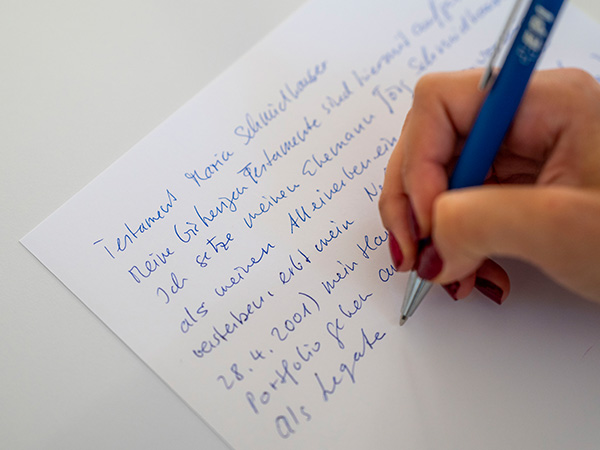 Testament Maria Schmidhauser
Meine bisherigen Testamente sind hiermit
Ich setze meinen Ehemann Jörg Schmidhauser
als meinen Alleinerben ein
versterben, erbt mein
28.4.2001) mein
Portfolio gehen
als Legate
EPI